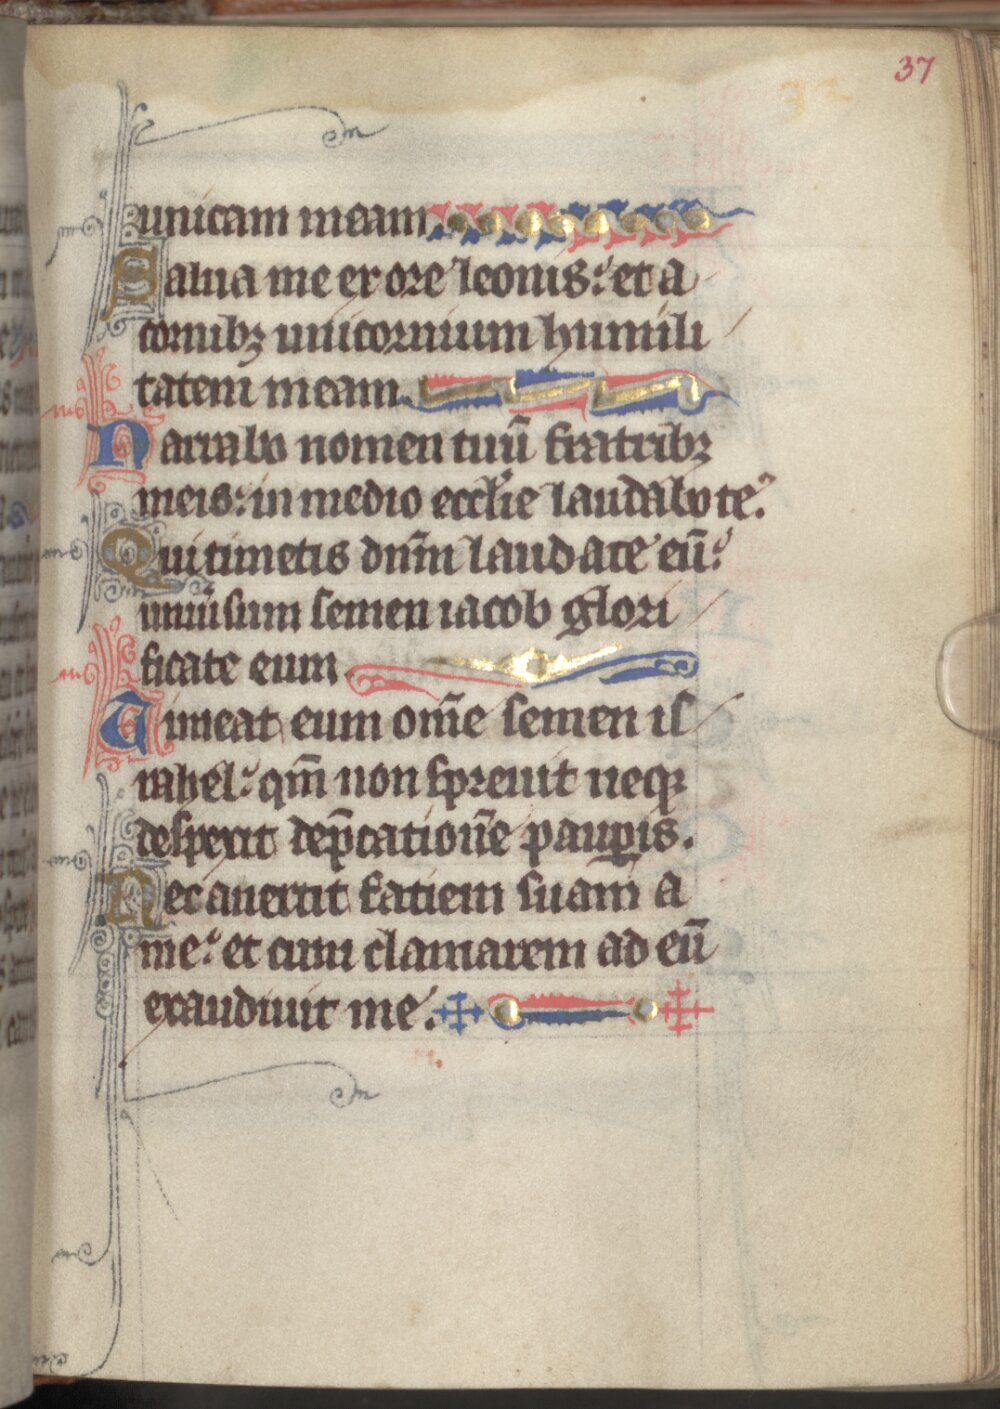 37
32
unicam meam.
Salua me ex ore leonis: et a
cornibꝫ unicornium humili
tatem meam.
Narrabo nomen tuū fratribꝫ
meis: in medio eccl̓ie laudabo te.
Qui timetis dn̄m laudate eū:
uniūsum semen iacob glori
ficate eum
Timeat eum om̄e semen is
rahel: qm̄ non spreuit neqꝫ
desperit dep̄cationē paup̲is.
Nec auertit faciem suam a
me: et cum clamarem ad eū
exaudiuit me.